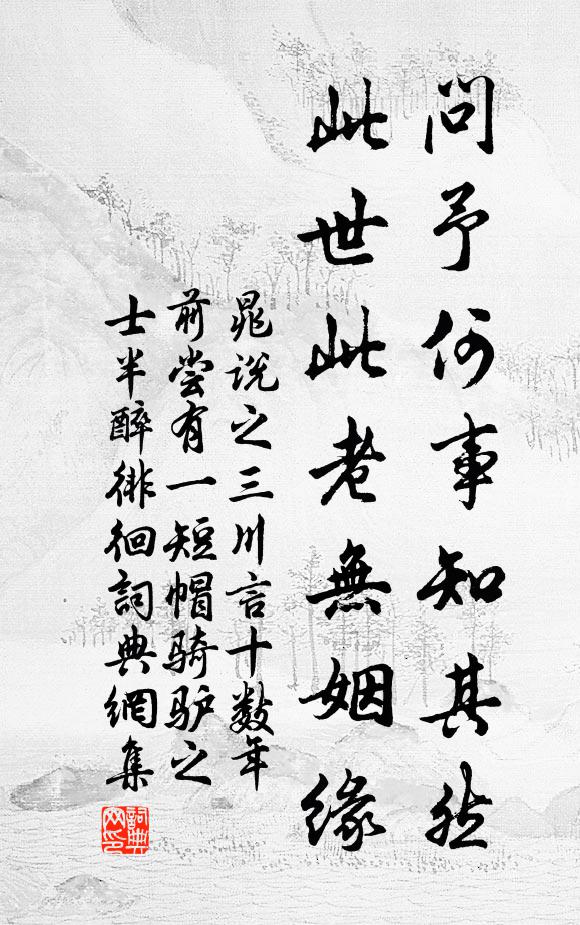 問予何事知其然
此世此老無姻緣
晁説之三川言十數年
前嘗有一短帽骑驴之
士半醉徘徊詞典網集
詞典网印